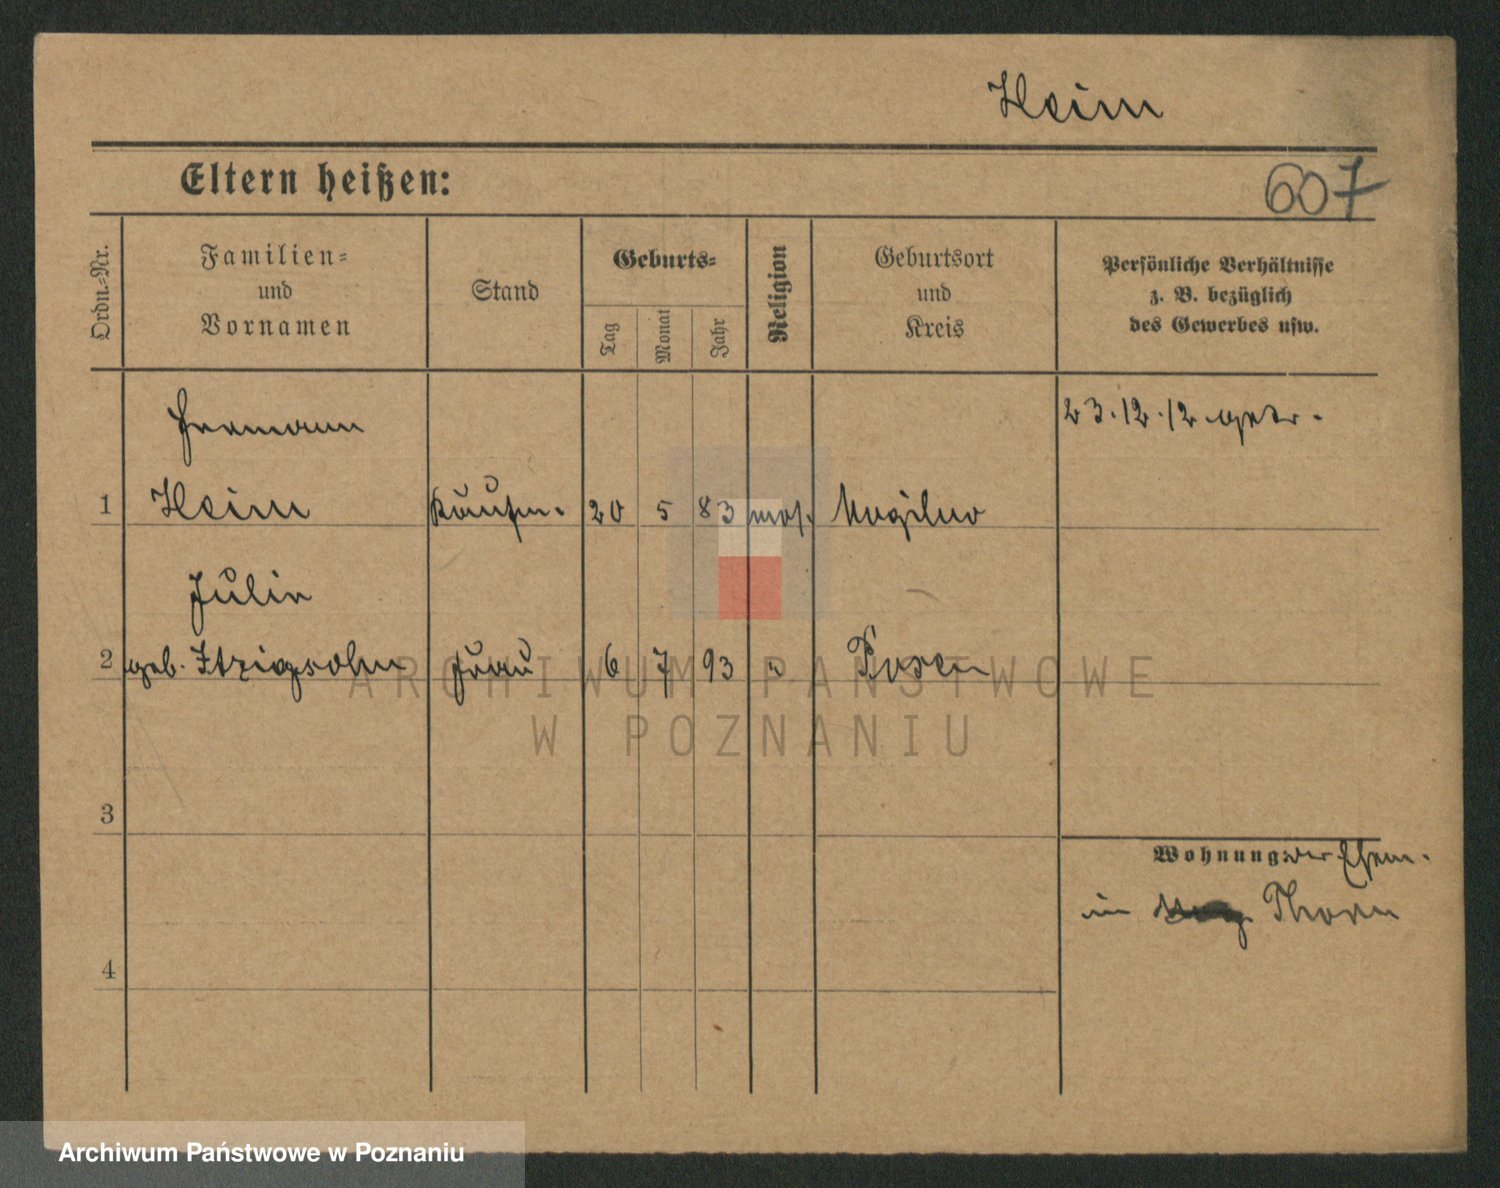 Heim
Eltern heißen:
607
Ordn.-Nr.
Familien-
und
Vornamen
Stand
Geburts-
Tag
Monat
Jahr
Religion
Geburtsort
und
Kreis
Persönliche Verhältnisse
z. B. bezüglich
des Gewerbes usw.
Hermann
23.12.12 getr.
1 Heim Kaufm. 20 5 83 mos. Mogilno
Julie
2 geb. Itzigsohn Frau 6 7 93 " Posen
ARCHIWUM PAŃSTWOWE
W POZNANIU
3
Wohnung: der Ehem.
in Thorn
4
Archiwum Państwowe w Poznaniu